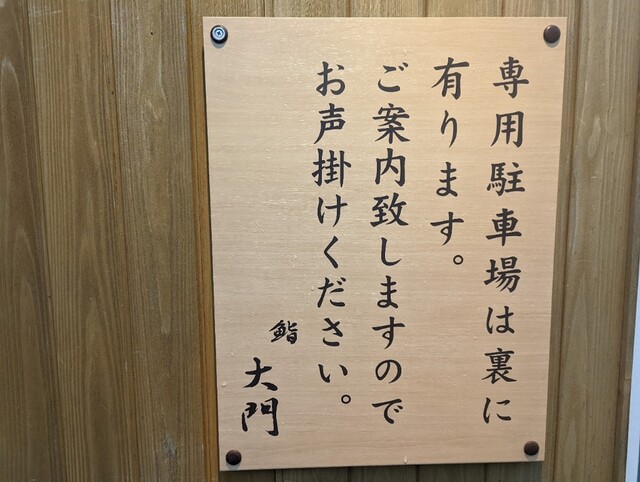 専用駐車場は裏に
有ります。
ご案内致しますので
お声掛けください。
鮨
大門